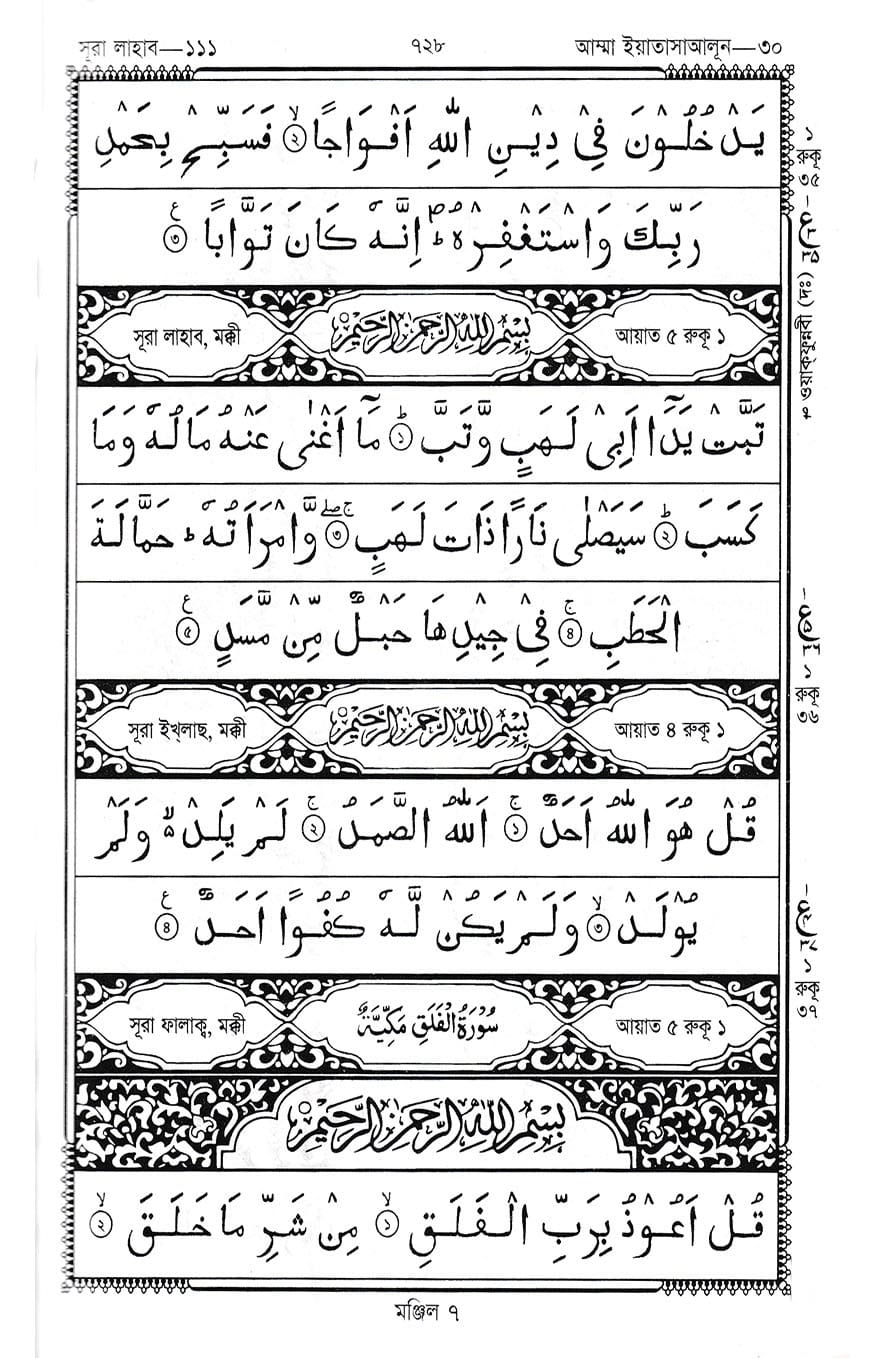 সূরা লাহাব—১১১ ৭২৮ আম্মা ইয়াতাসাআলূন—৩০
يَدْخُلُوْنَ فِيْ دِيْنِ اللّٰهِ اَفْوَاجًا ۙ﴿২﴾ فَسَبِّحْ بِحَمْدِ
رَبِّكَ وَاسْتَغْفِرْهُ ؕ اِنَّهٗ كَانَ تَوَّابًا ﴿৩﴾ ع
সূরা লাহাব, মক্কী بِسْمِ اللّٰهِ الرَّحْمٰنِ الرَّحِيْمِ আয়াত ৫ রুকূ ১
تَبَّتْ يَدَاۤ اَبِيْ لَهَبٍ وَّتَبَّ ؕ﴿১﴾ مَاۤ اَغْنٰى عَنْهُ مَالُهٗ وَمَا
كَسَبَ ؕ﴿২﴾ سَيَصْلٰى نَارًا ذَاتَ لَهَبٍ ۚۖ﴿৩﴾ وَّامْرَاَتُهٗ ؕ حَمَّالَةَ
الْحَطَبِ ۚ﴿৪﴾ فِيْ جِيْدِهَا حَبْلٌ مِّنْ مَّسَدٍ ﴿৫﴾ ع
সূরা ইখ্‌লাছ, মক্কী بِسْمِ اللّٰهِ الرَّحْمٰنِ الرَّحِيْمِ আয়াত ৪ রুকূ ১
قُلْ هُوَ اللّٰهُ اَحَدٌ ۚ﴿১﴾ اَللّٰهُ الصَّمَدُ ۚ﴿২﴾ لَمْ يَلِدْ ۙ۬ وَلَمْ
يُوْلَدْ ۙ﴿৩﴾ وَلَمْ يَكُنْ لَّهٗ كُفُوًا اَحَدٌ ﴿৪﴾ ع
সূরা ফালাক্ব, মক্কী سُوْرَةُ الْفَلَقِ مَكِّيَّةٌ আয়াত ৫ রুকূ ১
بِسْمِ اللّٰهِ الرَّحْمٰنِ الرَّحِيْمِ
قُلْ اَعُوْذُ بِرَبِّ الْفَلَقِ ۙ﴿১﴾ مِنْ شَرِّ مَا خَلَقَ ۙ﴿২﴾
মঞ্জিল ৭
১
রুকূ
৩৫
ওয়াক্‌ফুন্নবী (দঃ)
১
রুকূ
৩৬
১
রুকূ
৩৭